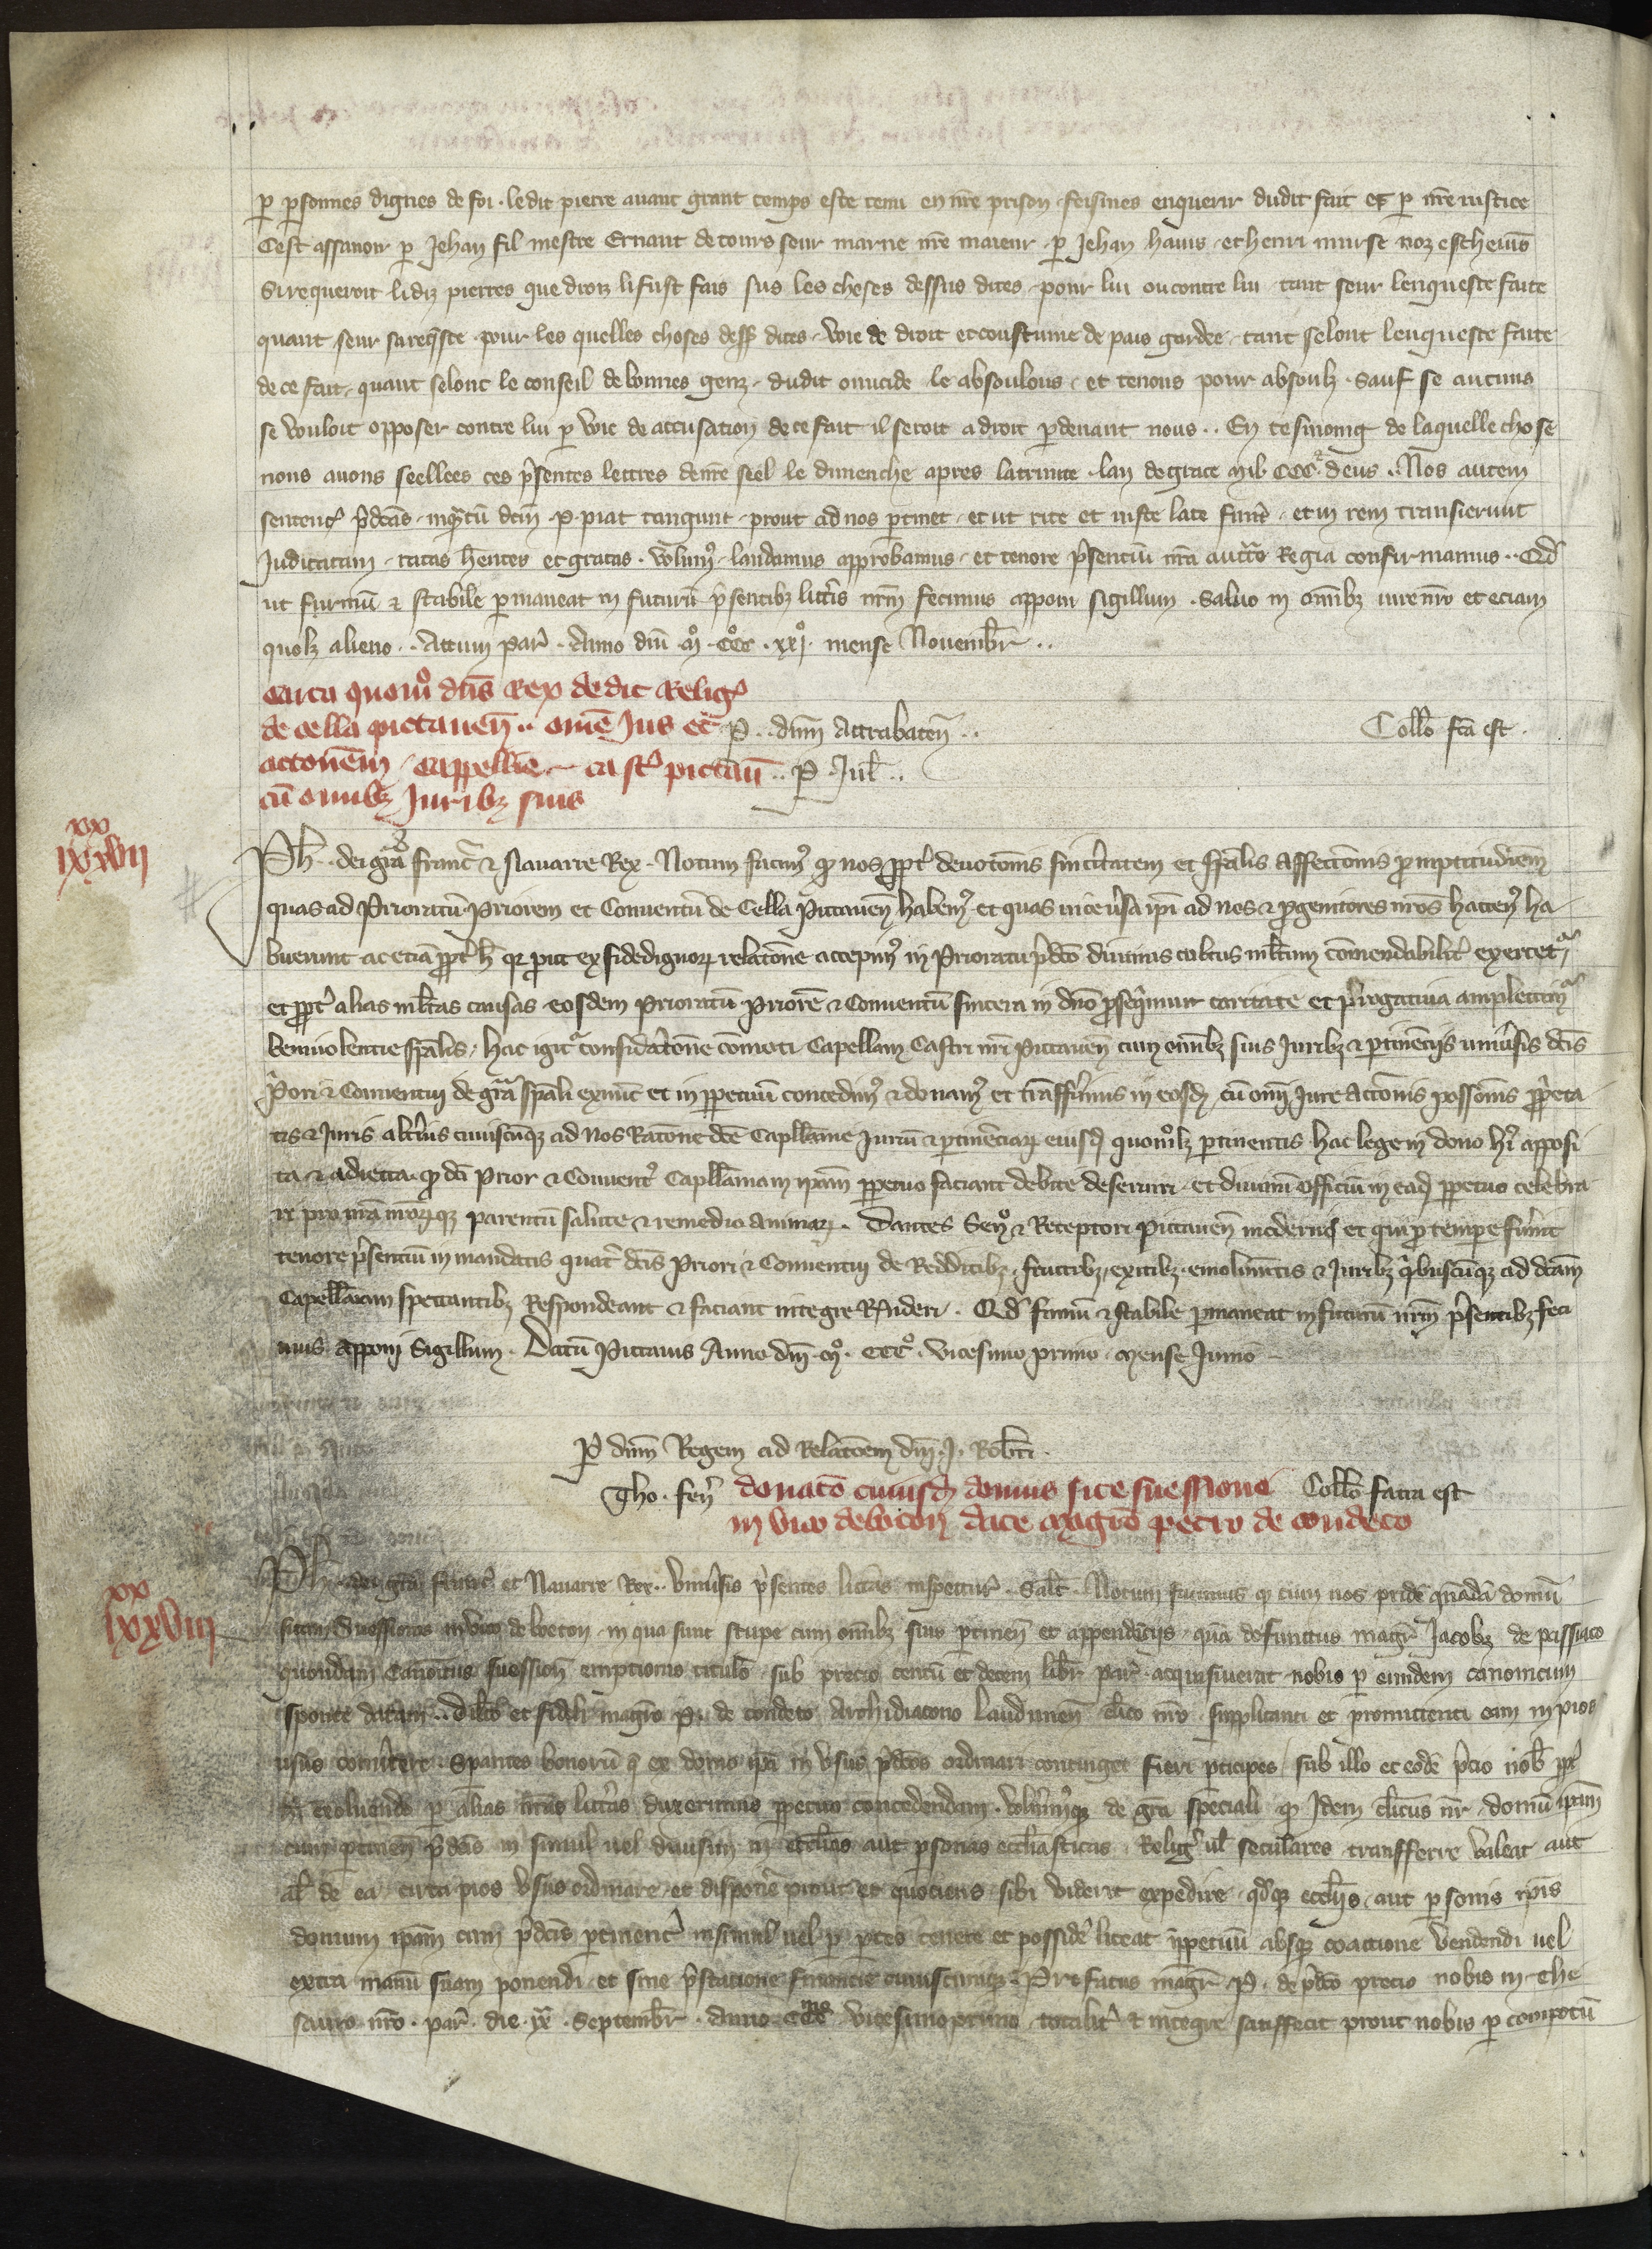 p personnes dignes de foi . ledit pierre auant grant temps este tenu en nre prison . feismes enquerir dudit fait et p nre iustice
Cest assauoir p Jehan fil mestre Ernaut de cours seur marne nre maieur . p Jehan hauis . et henri murse noz escheuis
Si requeroit lidiz pierres que droiz li fust fais sus les choses dessus dites . pour lui ou contre lui tant seur lenqueste faite
quant seur sa reqste . pour les quelles choses dess dites . voie de droit et coustume de pais gardee . tant selonc lenqueste faite
de ce fait . quant selonc le conseil de bonnes genz . dudit omicide le absoulons . et tenons pour absoulz . Sauf se aucuns
se vouloit opposer contre lui p voie de accusation de ce fait il seroit a droit pdeuant nous . . En tesmoing de laquelle chose
nous auons seellees ces psentes lettres de nre seel le dimenche apres la trinite . lan de grace mil CCC . deus . . Nos autem
sentenc pdcas . inqtu dcm . P . tangunt . prout ad nos ptinet . et ut rite et iuste late fuert . et in rem transierunt
Judicatam . ratas hentes et gratas . volumus . laudamus approbamus . et tenore psentiu nra auctte Regia confirmamus . . Qd
ut firmu & stabile pmaneat in futuru psentibz litteris nrm fecimus apponi sigillum . Saluo in omibz iure nro et eciam
quolz alieno . . Actum par . Anno dni mo . CCCo . xxjo . mense Nouembr . .
Carta quomo dns Rex dedit Relig
de cella pictauen . . ome Jus et P . . dnm Attrabaten . . Collo fca est .
actonem . cappellie . castr pictau . . P . Jul . .
cu omibz Juribz suis
xx
ixxvii
Ph . . dei gra franc & Nauarre Rex . Notum facim q nos ppt deuotonis sinceritatem et spalis affectonis promptitudinem
quas ad Prioratu . Priorem et Conuentu de Cella Pictauen habem . et quas ipi ad nos & pgenitores nros hacten ha
buerunt ac etia ppt h q put ex fidedignor relatone accepim in Prioratu pdco diuinus cultus mltum comendabilit exercet
et ppt alias mltas causas eosdem Prioratu Priore & Conuentu sincera in dno psequimur caritate et prerogatiua amplectim
beniuolentie spalis . hac igit consideratone comoti Capellam Castri nri Pictauen cum omibz suis Juribz & ptinenciis uniuersis dcis
Priori & Conuentui de gra spali ex nunc et in ppetuu concedim & donam et transferimus in eosd cu omi Jure Actonis possonis ppeta
tis & Juris alterius cuiuscuqz ad nos Ratone dce Capllanie Juriu & ptinenciar eiusd quomolz ptinentis hac lege in dono hi apposi
ta & adiecta . q dci Prior & Conuent Capllaniam ipam ppetuo faciant debite deseruiri . et diuinu officiu in ead ppetuo celebra
ri pro nra nrorqz parentu salute & remedio animar . Dantes Sen & Receptori Pictauen modernis et qui p tempore fuerint
tenore psentiu in mandatis quat dcis Priori & Conuentui de Redditibz . fructibz . exitibz . emolumentis & Juribz quibuscuqz ad dcam
Capellaniam spectantibz Respondeant & faciant integre Rnderi . Qd firmu & stabile pmaneat in futuru nrm psentibz feci
mus apponi Sigillum . Datu Pictauis Anno dni mo . CCCo . vicesimo primo . mense Junio
P dnm Regem ad Relatoem dni . J . Robti .
Tho . fer donato cuiusd domus site suessione Collo facta est
in vico de beton dace magro petro de condeto
xx
ixxviii
Ph . dei gra franc et Nauarre Rex . . Vniuersis psentes litteras inspectur . Salt . Notum facimus q cum nos pride quada domu
sitam Suessionis in vico de beton . in qua sunt stupe cum omibz suis ptinen et appendiciis . qua defunctus magr Jacobz de passiaco
quondam Canonicus suession emptionis titulo . sub precio centu et decem libr par . acquisiuerat . nobis p eundem canonicum
sponte datam . . Dilcto et fideli magro P . de condeto Archidiacono Laudunen clico nro . supplicanti et promittenti eam in pios
usus conuertere . Sperantes bonoru q ex domo ipa in usus pdcos ordinari continget fieri pticipes . sub illo et eode pcio nob
soluendo p alias nras litteras duxerimus ppetuo concedendam . volumusqz de gra speciali q Idem clicus nr . domu ipam
cum ptinen pdcis in simul uel diuisim in ecclias aut psonas ecclasticas . Relig ul seculares transferre valeat aut
al de ea circa pios usus ordinare et disponere prout et quociens sibi viderit expedire . qdqz eccliis aut psonis ipis
domum ipam cum pdcis ptinenc insimul uel p ptes tenere et possidere liceat ippetuu absqz coactione vendendi uel
extra manu suam ponendi et sine pstatione financie cuiuscumqz . Prefatus magr P . de pdco precio nobis in the
sauro nro . par . die . xx . Septembr . anno CCC vicesimoprimo totalit & integre satisfecit prout nobis p compotu